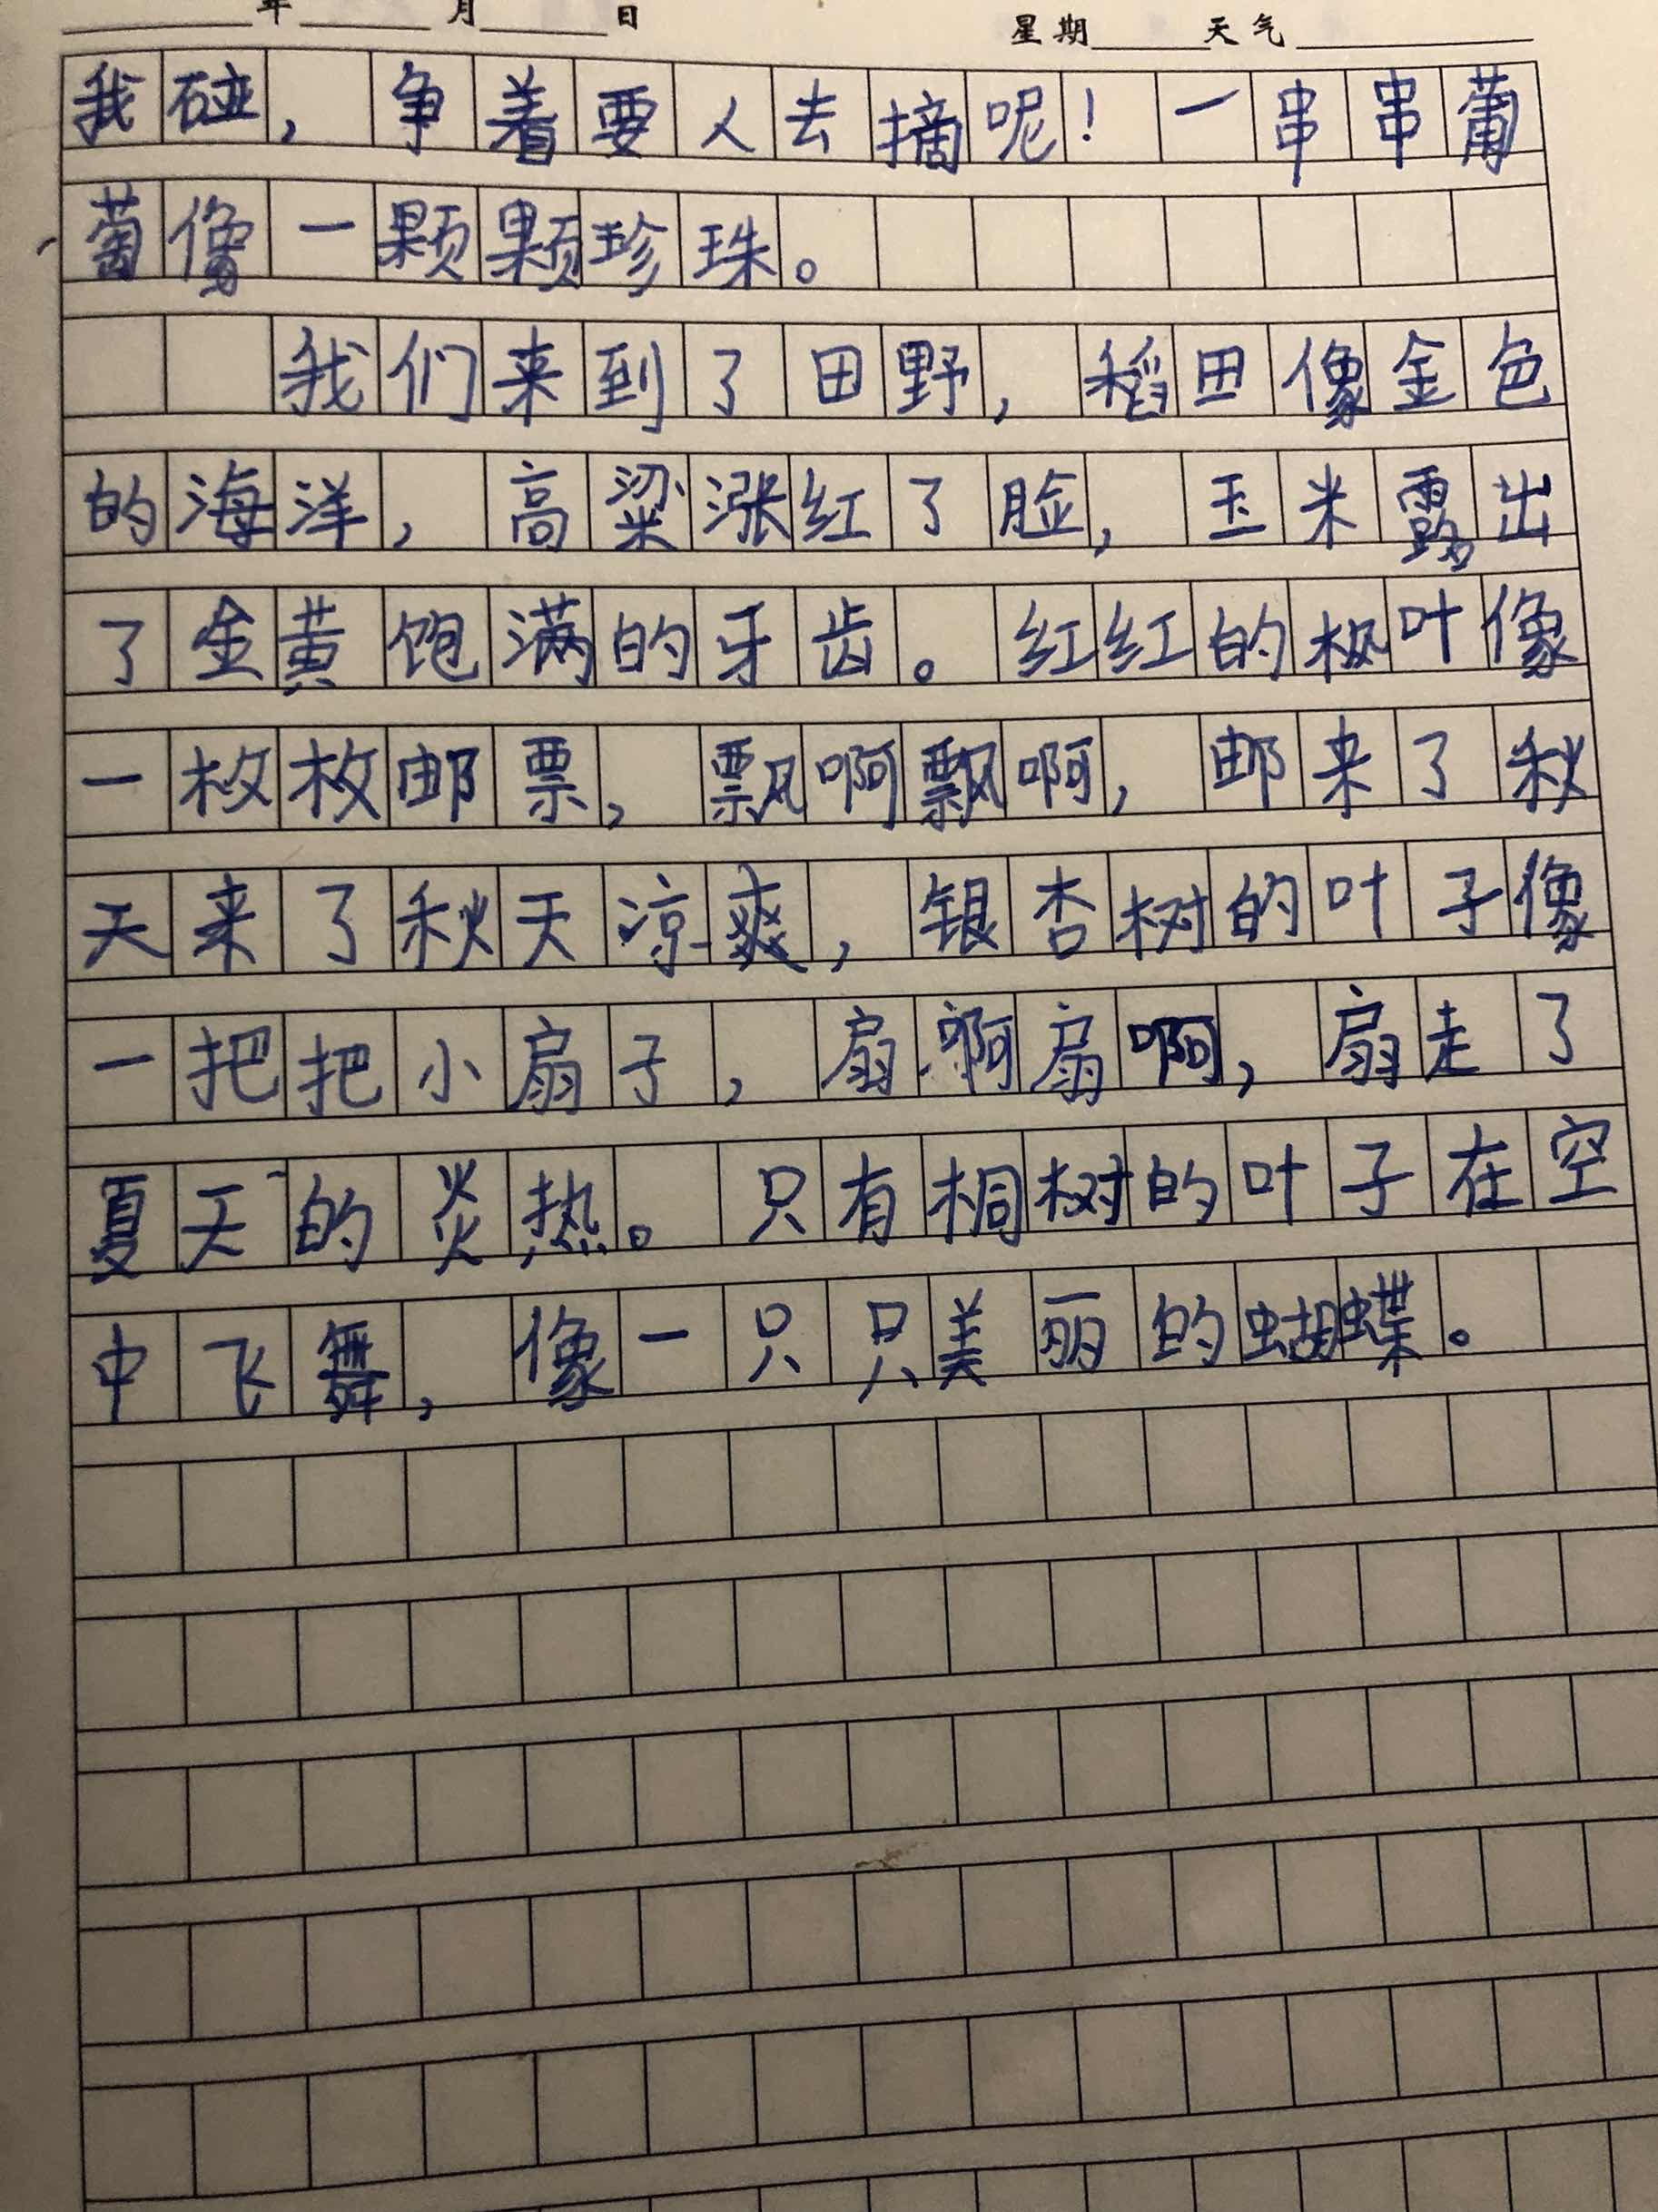 年 月 日 星期 天气
我碰，争着要人去摘呢！一串串葡
萄像一颗颗珍珠。
我们来到了田野，稻田像金色
的海洋，高粱涨红了脸，玉米露出
了金黄饱满的牙齿。红红的枫叶像
一枚枚邮票，飘啊飘啊，邮来了秋
天来了秋天凉爽，银杏树的叶子像
一把把小扇子，扇啊扇啊，扇走了
夏天的炎热。只有桐树的叶子在空
中飞舞，像一只只美丽的蝴蝶。